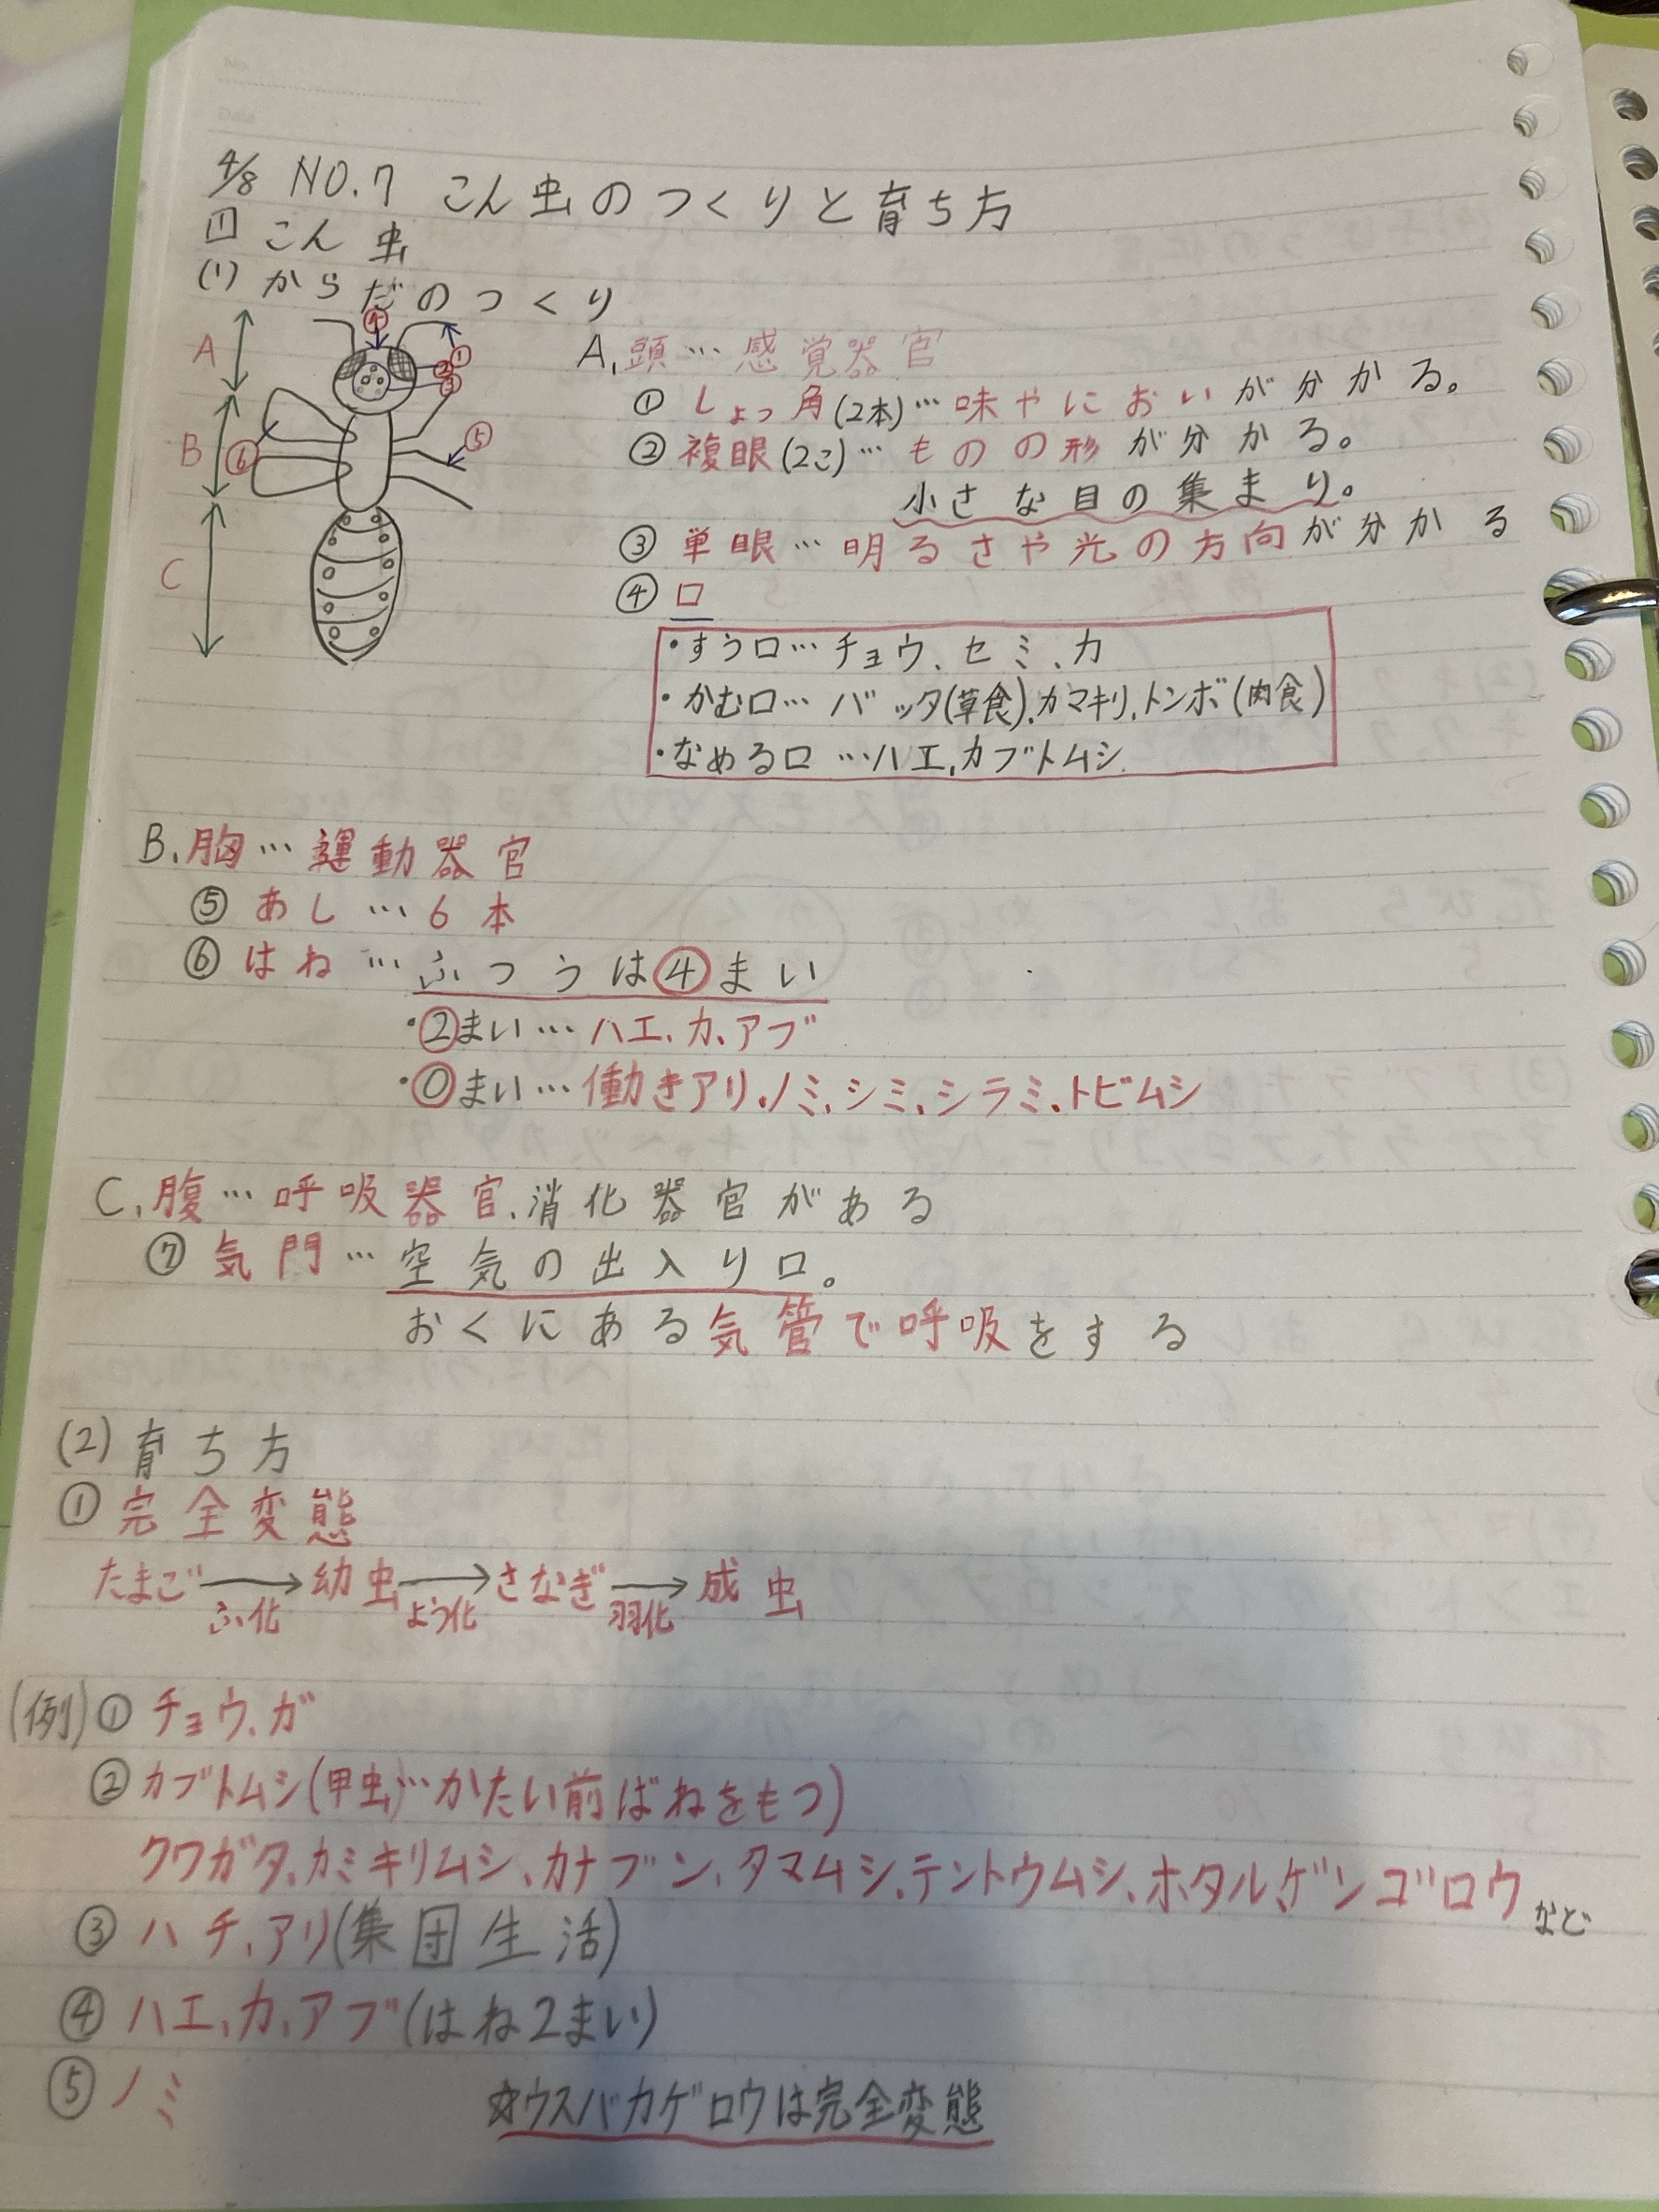 No.
Date
4/8 NO.7 こん虫のつくりと育ち方
1 こん虫
(1) からだのつくり
A
B
C
④
①
②
③
⑤
⑥
A. 頭…感覚器官
① しょっ角(2本)…味やにおいが分かる。
② 複眼(2こ)…ものの形が分かる。
小さな目の集まり。
③ 単眼…明るさや光の方向が分かる
④ 口
・すう口…チョウ、セミ、カ
・かむ口…バッタ(草食)、カマキリ、トンボ(肉食)
・なめる口…ハエ、カブトムシ
B. 胸…運動器官
⑤ あし…6本
⑥ はね…ふつうは④まい
・②まい…ハエ、カ、アブ
・⓪まい…働きアリ、ノミ、シミ、シラミ、トビムシ
C. 腹…呼吸器官、消化器官がある
⑦ 気門…空気の出入り口。
おくにある気管で呼吸をする
(2) 育ち方
① 完全変態
たまご→幼虫→さなぎ→成虫
ふ化 よう化 羽化
(例) ① チョウ、ガ
② カブトムシ(甲虫)…かたい前ばねをもつ)
クワガタ、カミキリムシ、カナブン、タマムシ、テントウムシ、ホタル、ゲンゴロウなど
③ ハチ、アリ(集団生活)
④ ハエ、カ、アブ(はね2まい)
⑤ ノミ
☆ウスバカゲロウは完全変態